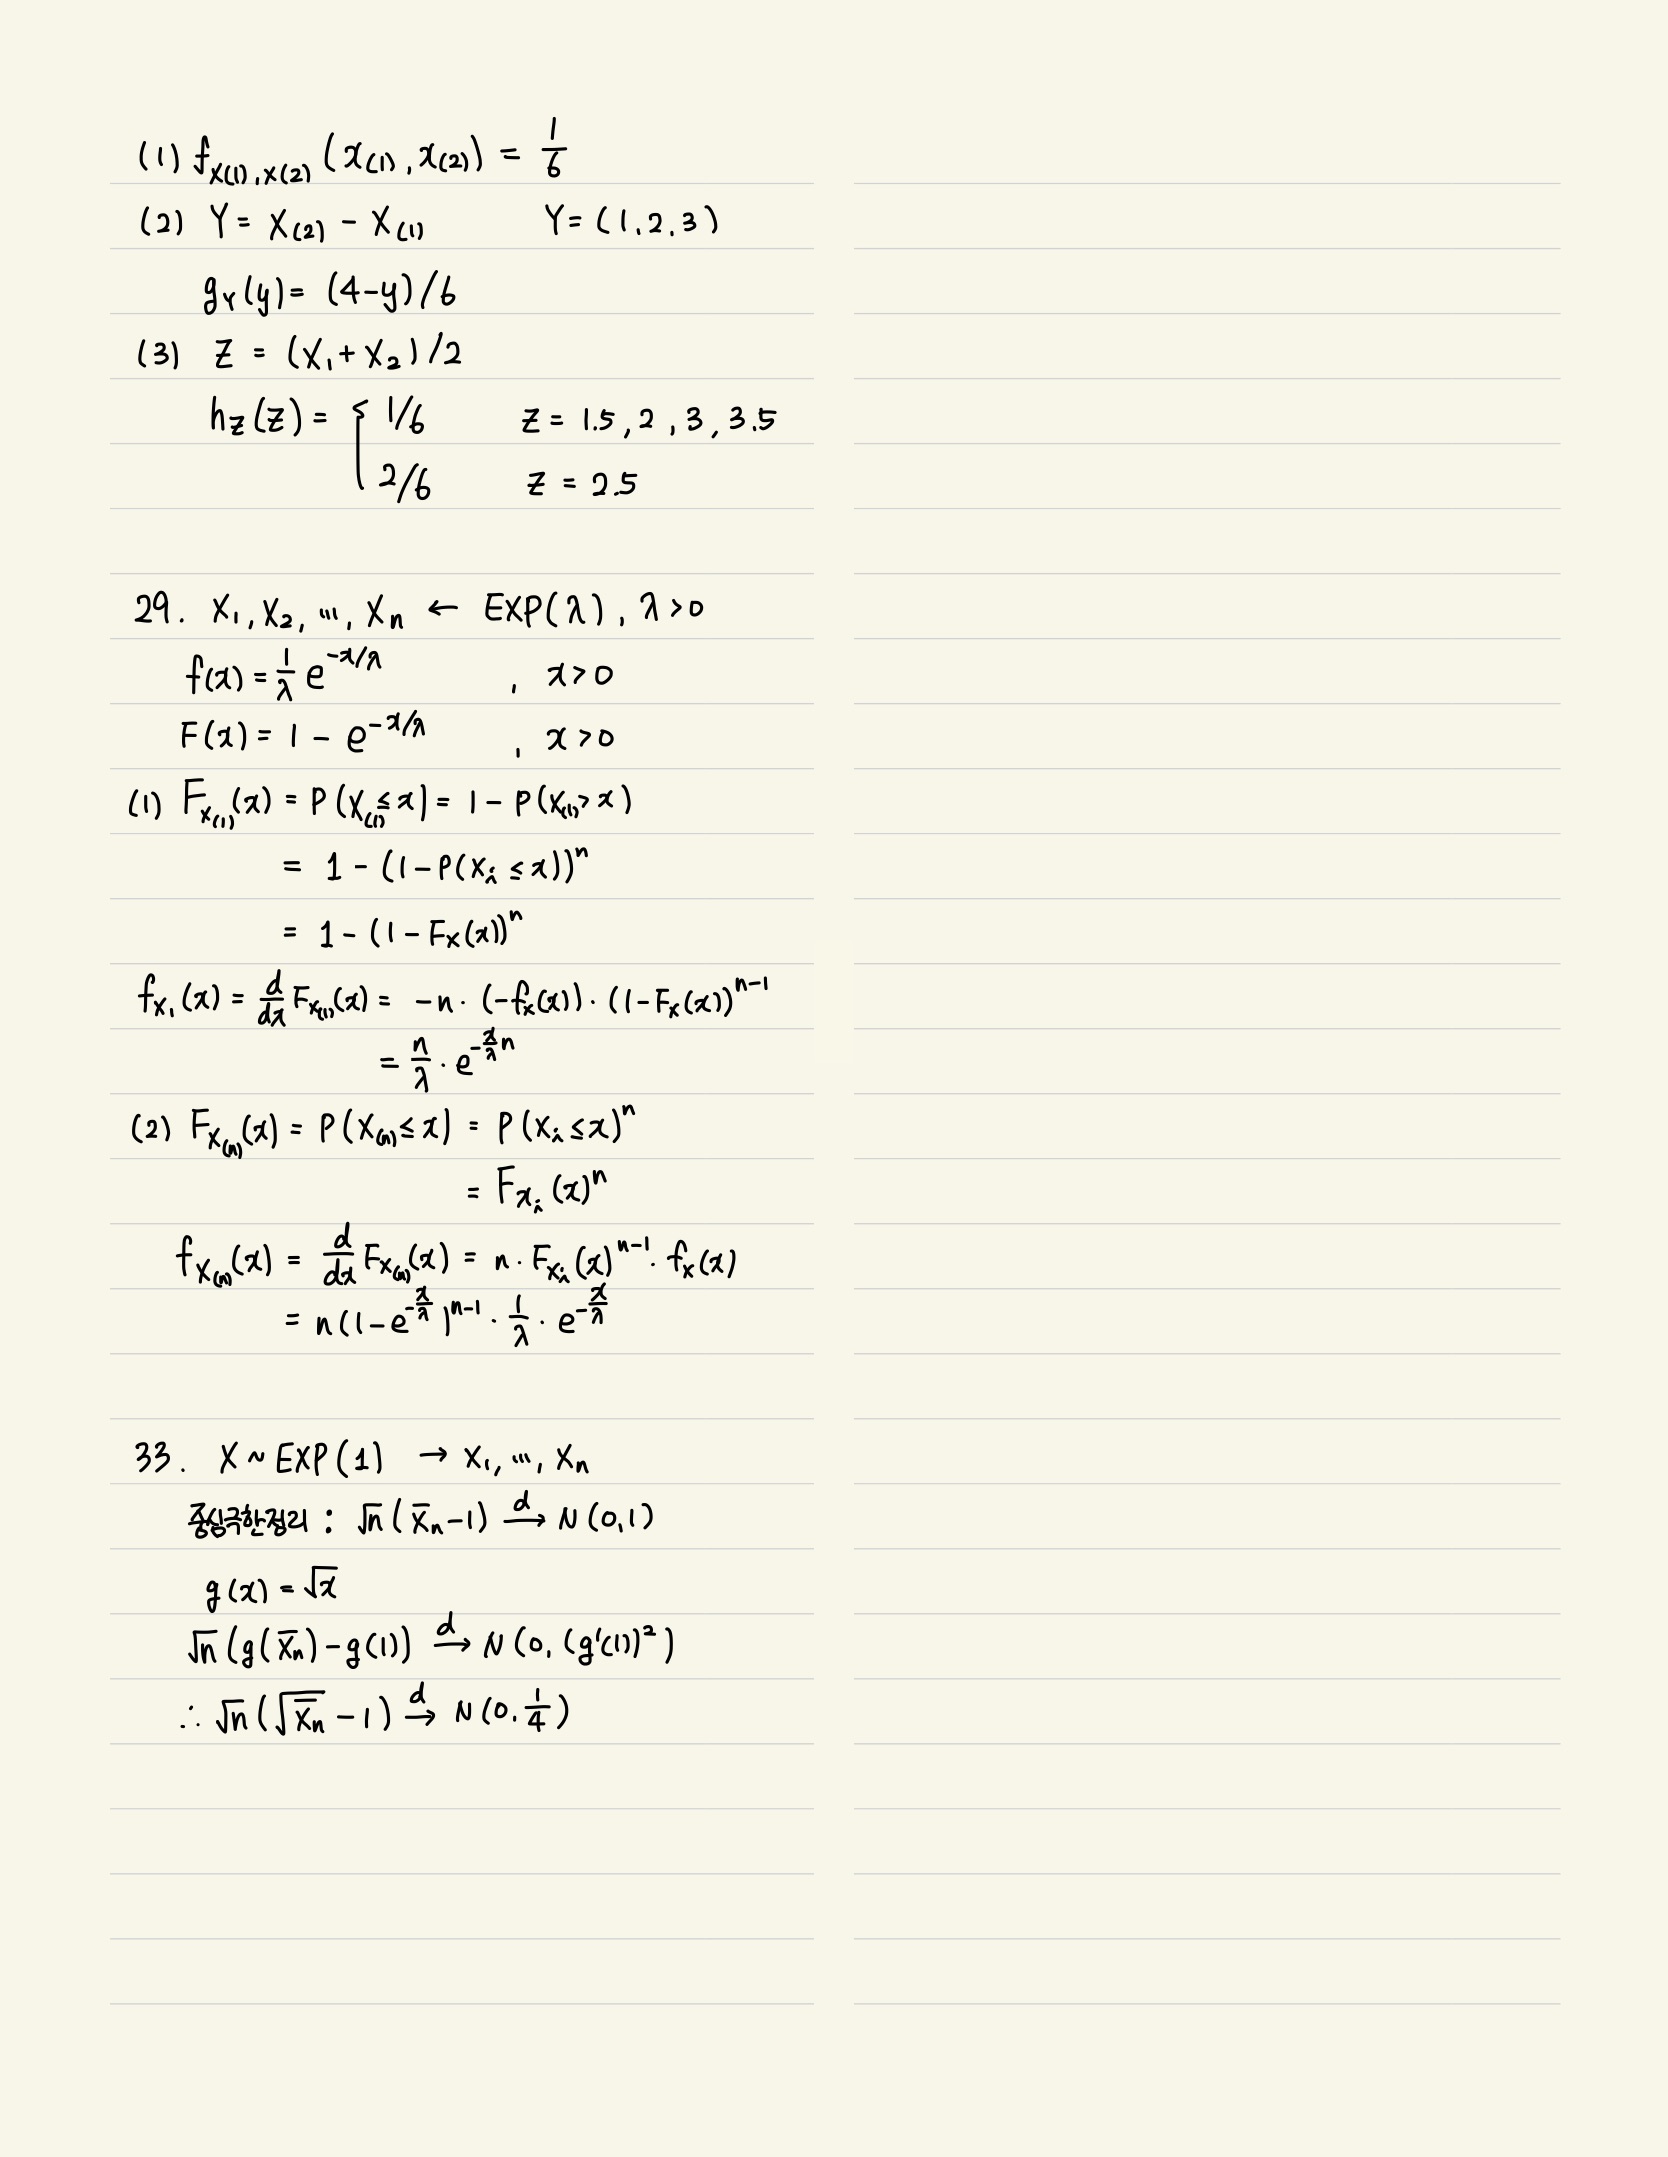 (1) f_{X(1),X(2)} (x_{(1)}, x_{(2)}) = 1/6
(2) Y = X_{(2)} - X_{(1)}    Y = (1, 2, 3)
g_Y(y) = (4-y)/6
(3) Z = (X_1 + X_2)/2
h_Z(z) = { 1/6    z = 1.5, 2, 3, 3.5
2/6    z = 2.5
29. X_1, X_2, ..., X_n ← EXP(λ), λ>0
f(x) = \frac{1}{λ} e^{-x/λ}    , x>0
F(x) = 1 - e^{-x/λ}    , x>0
(1) F_{X_{(1)}}(x) = P(X_{(1)} ≤ x) = 1 - P(X_{(1)} > x)
= 1 - (1 - P(X_i ≤ x))^n
= 1 - (1 - F_X(x))^n
f_{X_1}(x) = \frac{d}{dx} F_{X_{(1)}}(x) = -n · (-f_X(x)) · (1 - F_X(x))^{n-1}
= \frac{n}{λ} · e^{-\frac{x}{λ}n}
(2) F_{X_{(n)}}(x) = P(X_{(n)} ≤ x) = P(X_i ≤ x)^n
= F_{X_i}(x)^n
f_{X_{(n)}}(x) = \frac{d}{dx} F_{X_{(n)}}(x) = n · F_{X_i}(x)^{n-1} · f_X(x)
= n(1 - e^{-\frac{x}{λ}})^{n-1} · \frac{1}{λ} · e^{-\frac{x}{λ}}
33. X ~ EXP(1) → X_1, ..., X_n
중심극한정리 : √n (X̄_n - 1) \xrightarrow{d} N(0, 1)
g(x) = √x
√n (g(X̄_n) - g(1)) \xrightarrow{d} N(0, (g'(1))^2)
∴ √n (√{X̄_n} - 1) \xrightarrow{d} N(0, \frac{1}{4})